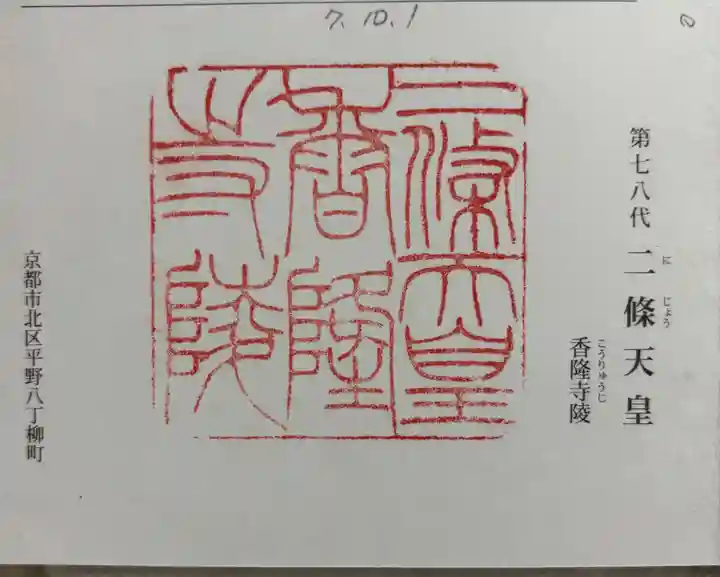 7.10.1
第七八代 二條天皇
に じょう
香隆寺陵
こうりゅうじ
二條天皇
香隆
寺陵
京都市北区平野八丁柳町